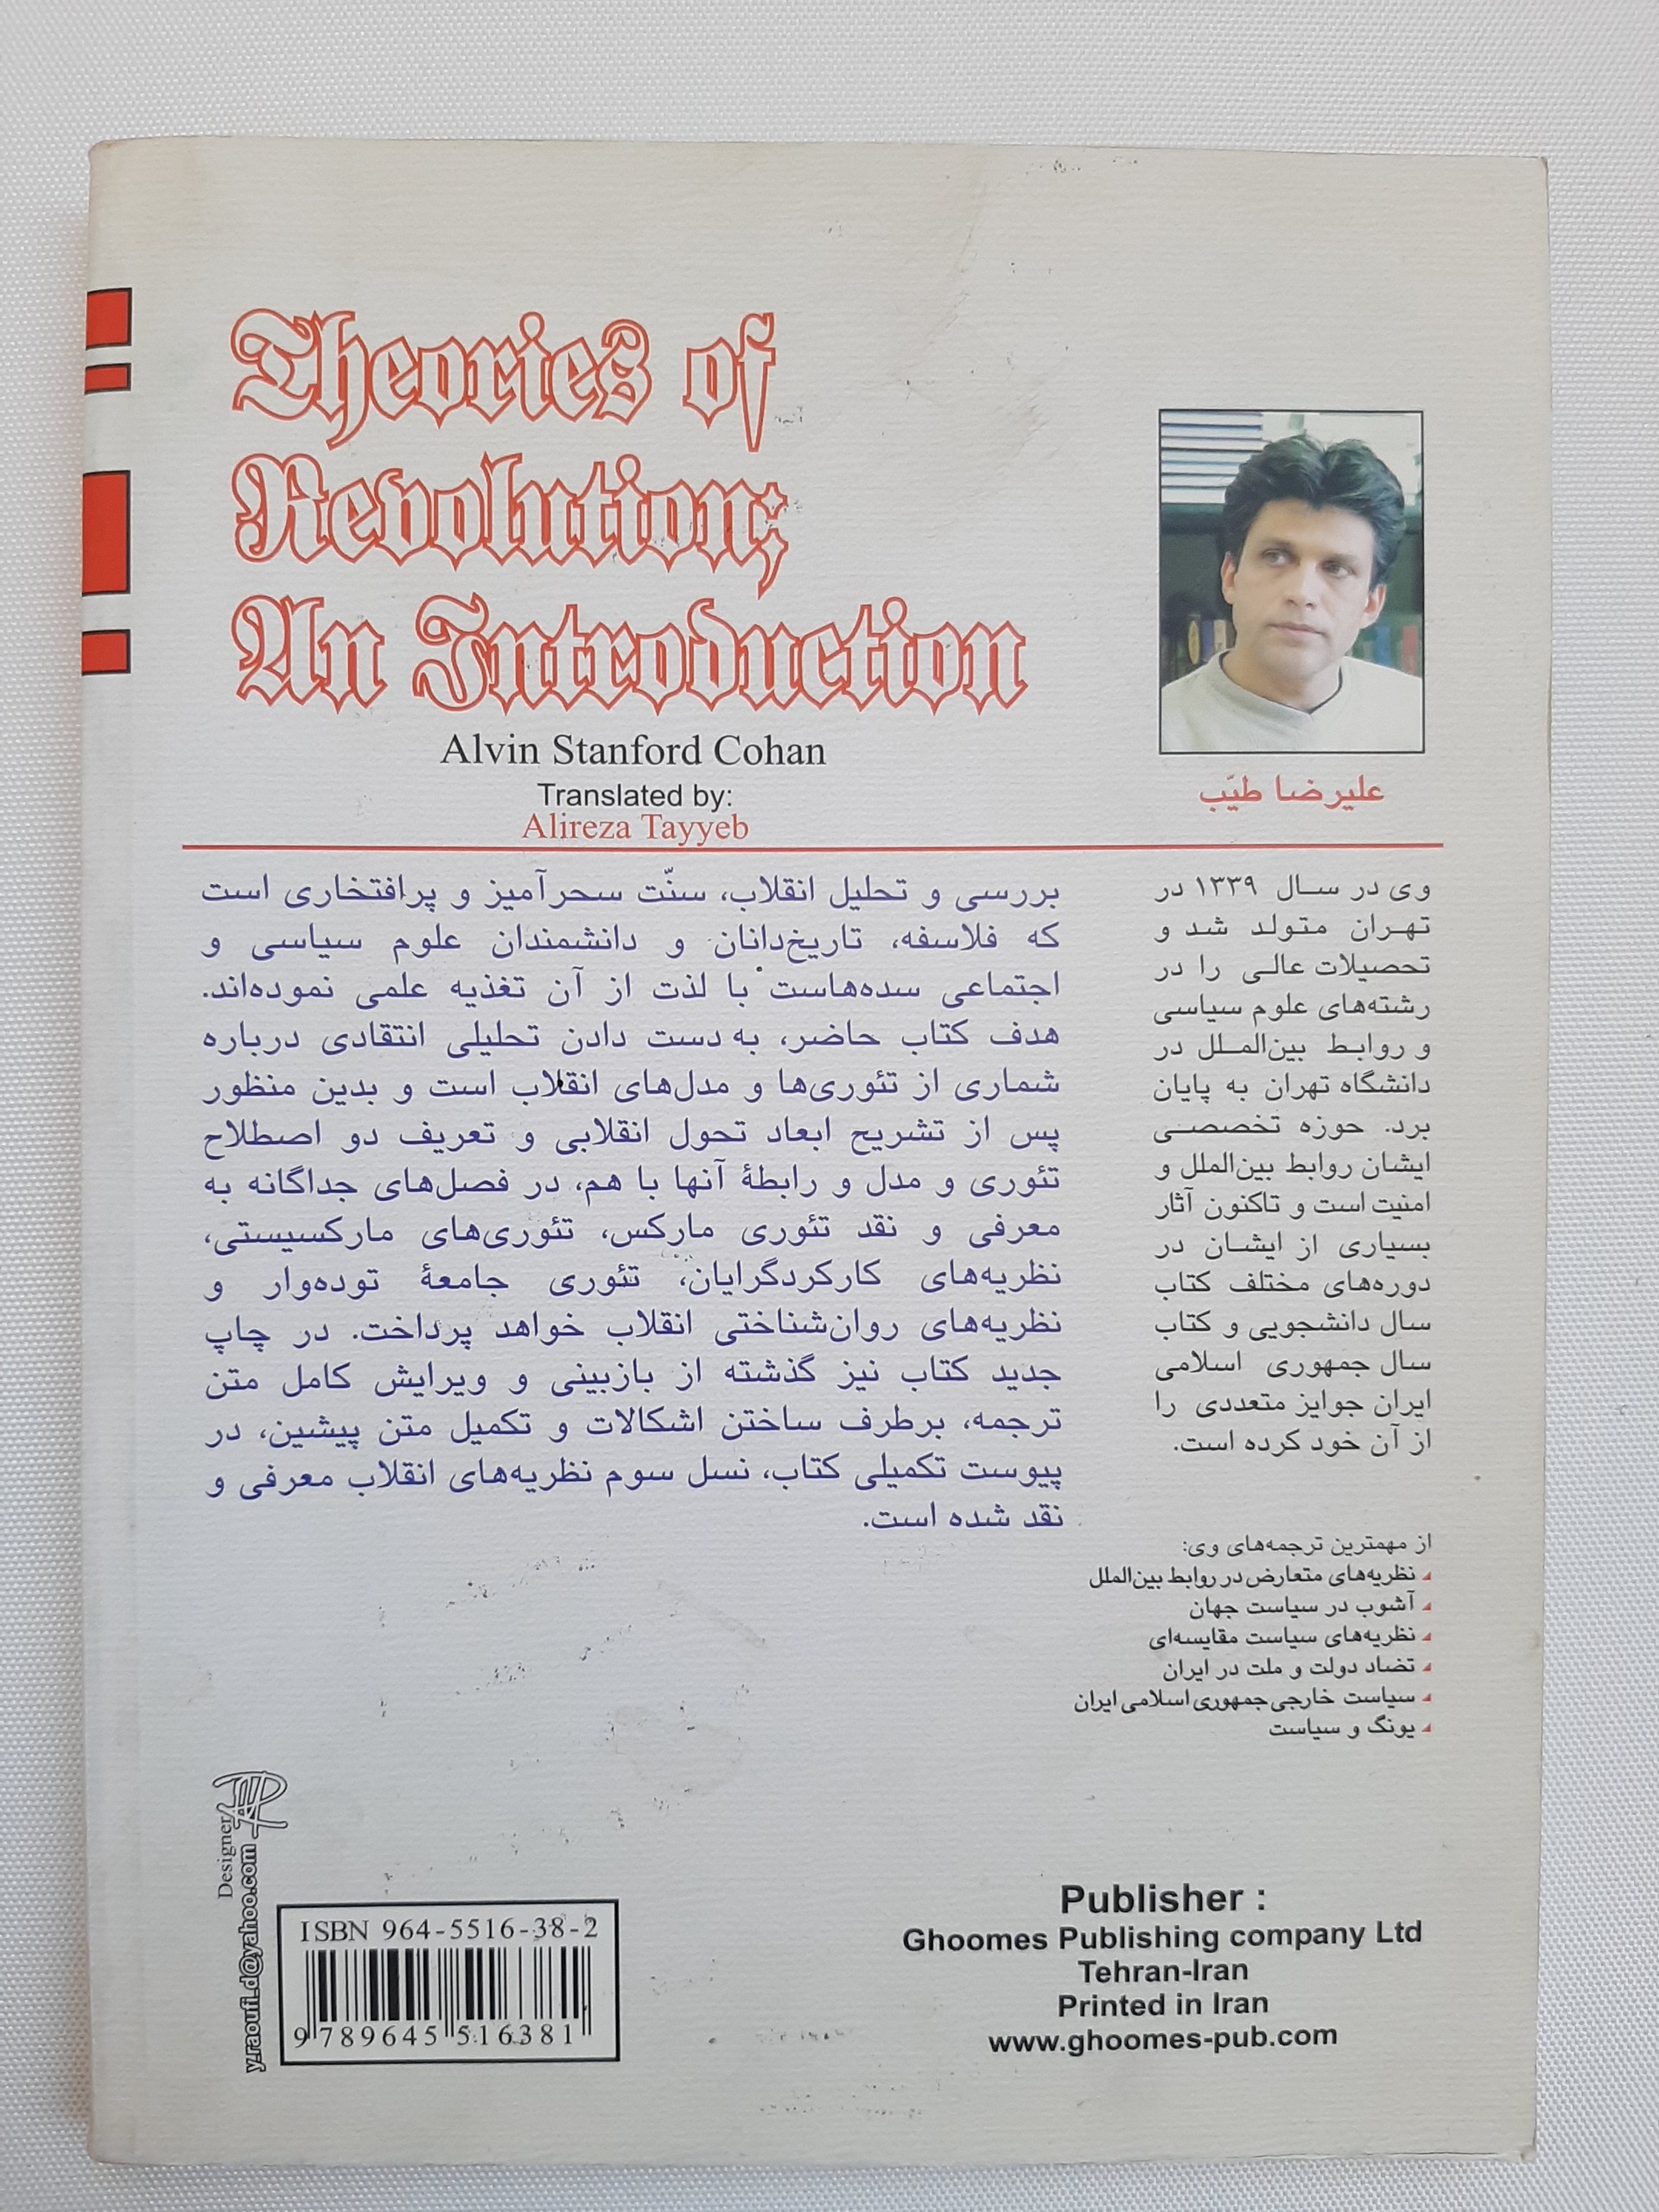 Theories of
Revolution;
An Introduction
Alvin Stanford Cohan
Translated by:
Alireza Tayyeb
علیرضا طیّب
بررسی و تحلیل انقلاب، سنّت سحرآمیز و پرافتخاری است
که فلاسفه، تاریخ‌دانان و دانشمندان علوم سیاسی و
اجتماعی سده‌هاست با لذت از آن تغذیه علمی نموده‌اند.
هدف کتاب حاضر، به دست دادن تحلیلی انتقادی درباره
شماری از تئوری‌ها و مدل‌های انقلاب است و بدین منظور
پس از تشریح ابعاد تحول انقلابی و تعریف دو اصطلاح
تئوری و مدل و رابطهٔ آنها با هم، در فصل‌های جداگانه به
معرفی و نقد تئوری مارکس، تئوری‌های مارکسیستی،
نظریه‌های کارکردگرایان، تئوری جامعهٔ توده‌وار و
نظریه‌های روان‌شناختی انقلاب خواهد پرداخت. در چاپ
جدید کتاب نیز گذشته از بازبینی و ویرایش کامل متن
ترجمه، برطرف ساختن اشکالات و تکمیل متن پیشین، در
پیوست تکمیلی کتاب، نسل سوم نظریه‌های انقلاب معرفی و
نقد شده است.
وی در سال ۱۳۳۹ در
تهران متولد شد و
تحصیلات عالی را در
رشته‌های علوم سیاسی
و روابط بین‌الملل در
دانشگاه تهران به پایان
برد. حوزه تخصصی
ایشان روابط بین‌الملل و
امنیت است و تاکنون آثار
بسیاری از ایشان در
دوره‌های مختلف کتاب
سال دانشجویی و کتاب
سال جمهوری اسلامی
ایران جوایز متعددی را
از آن خود کرده است.
از مهمترین ترجمه‌های وی:
نظریه‌های متعارض در روابط بین‌الملل
آشوب در سیاست جهان
نظریه‌های سیاست مقایسه‌ای
تضاد دولت و ملت در ایران
سیاست خارجی جمهوری اسلامی ایران
یونگ و سیاست
Designer
y.raoufi_d@yahoo.com
ISBN 964-5516-38-2
9 789645 516381
Publisher :
Ghoomes Publishing company Ltd
Tehran-Iran
Printed in Iran
www.ghoomes-pub.com